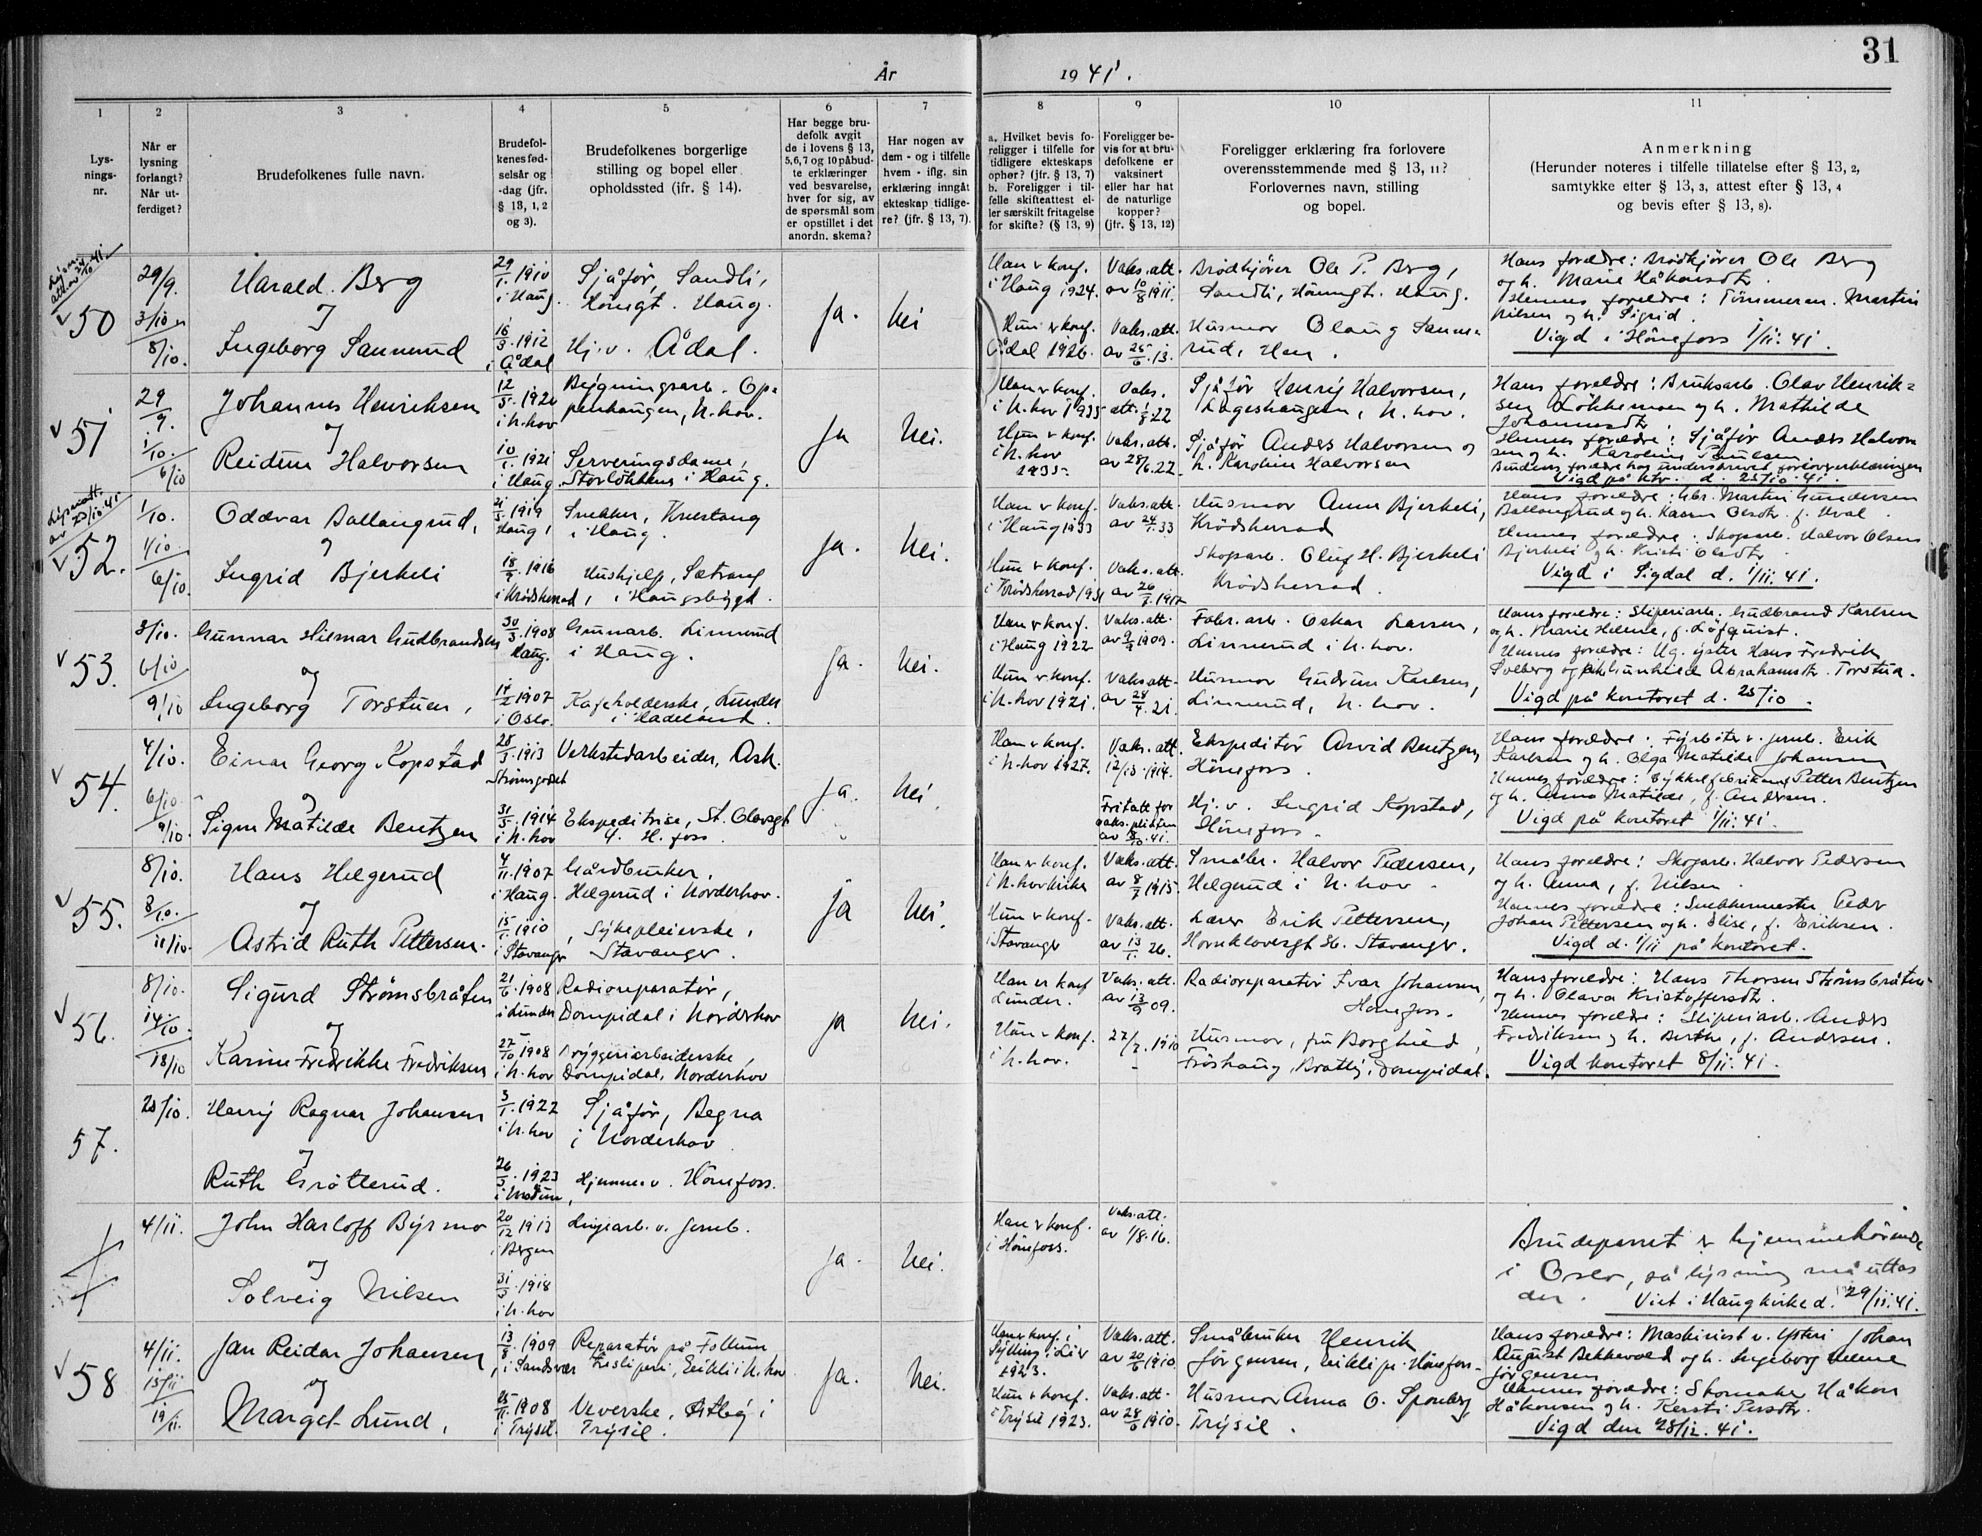 31
År 1941.
1
Lys-
nings-
nr.
2
Når er
lysning
forlangt?
Når ut-
ferdiget?
3
Brudefolkenes fulle navn.
4
Brudefol-
kenes fød-
selsår og
-dag (jfr.
§ 13, 1, 2
og 3).
5
Brudefolkenes borgerlige
stilling og bopel eller
opholdssted (ifr. § 14).
6
Har begge bru-
defolk avgit
de i lovens § 13,
5,6,7 og 10 påbud-
te erklæringer
ved besvarelse,
hver for sig, av
de spørsmål som
er opstillet i det
anordn. skema?
7
Har nogen av
dem - og i tilfelle
hvem - iflg. sin
erklæring inngått
ekteskap tidlige-
re? (jfr. § 13, 7).
8
a. Hvilket bevis fo-
religger i tilfelle for
tidligere ekteskaps
ophør? (jfr. § 13, 7)
b. Foreligger i til-
felle skifteattest el-
ler særskilt fritagelse
for skifte? (§ 13, 9)
9
Foreligger be-
vis for at bru-
defolkene er
vaksinert
eller har hat
de naturlige
kopper?
(jfr. § 13, 12)
10
Foreligger erklæring fra forlovere
overensstemmende med § 13, 11?
Forlovernes navn, stilling
og bopel.
11
Anmerkning
(Herunder noteres i tilfelle tillatelse efter § 13, 2,
samtykke efter § 13, 3, attest efter § 13, 4
og bevis efter § 13, 8).
50
29/9.
3/10
8/10.
Harald Berg
og
Ingeborg Sannerud
29/1.1910
i Haug.
16/3.1912
i Ådal
Sjåfør, Sandli,
Hønegt. Haug.
Hj.v. Ådal.
Ja.
Nei
Han er konf.
i Haug 1924.
Hun er konf.
Ådal 1926.
Vaks.att.
av 10/8 1911.
Vaks.att.
av 25/6.13.
Brødkjører Ole P. Berg,
Sandli, Hønegt. Haug.
Husmor Olaug Sanne-
rud, Hen.
Hans foreldre: Brødkjører Ole Berg
og h. Marie Håkonsdtr.
Hennes foreldre: Tømmerm. Martin
Nilsen og h. Sigrid.
Vigd i Hønefoss 1/11.41.
51
29/9.
1/10.
6/10
Johannes Henriksen
og
Reidun Halvorsen
12/5.1920
i N.hov
10/1.1921
i Haug
Bygningsarb. Op-
penhaugen, N.hov.
Serveringsdame,
Storløkken i Haug.
Ja
Nei.
Han er konf.
i N.hov 1935
Hun er konf.
i N.hov
1935
Vaks.
att. 1/8 22
Vaks.att.
av 28/6.22
Sjåfør Henrij Halvorsen,
Lageshaugen, N.hov.
Sjåfør Anders Halvorsen og
h. Karoline Halvorsen
Hans foreldre: Bruksarb. Olav Henrik-
sen Løkkemoen og h. Mathilde
Johannesdtr.
Hennes foreldre: Sjåfør Anders Halvor-
sen og h. Karoline Paulsen
Vigd på ktr. d. 25/10.41.
52.
1/10.
1/10
6/10.
Oddvar Ballangrud,
og
Ingrid Bjerkeli
21/5.1919
Haug,
18/9.1916
i Krødsherad,
Snekker, Kvestang
i Haug.
Hushjelp, Sætrang
i Haugsbygd.
Ja.
Nei.
Han er konf.
i Haug 1933
Hun er konf.
i Krødsherad 1931
Vaks.att.
av 24/1.33
Vaks.att.
av 26/7.1917
Husmor Anne Bjerkeli,
Krødsherad
Skogsarb. Oluf H. Bjerkeli
Krødsherad.
Hans foreldre: Gbr. Martin Gundersen
Ballangrud og h. Karen Olesdtr. f. Hval.
Hennes foreldre: Skogsarb. Halvor Olsen
Bjerkeli og h. Kristi Olsdtr.
Vigd i Sigdal d. 1/11.41.
53.
3/10.
6/10
9/10
Gunnar Hilmar Gudbrandsen
og
Ingeborg Torstuen,
30/3.1908
Haug.
14/2 1907
i Oslo.
Grunarb. Linnerud
i Haug.
Kafeholderske, Lunder
i Hadeland.
Ja.
Nei.
Han er konf.
i Haug 1922
Hun er konf.
i N.hov 1921.
Vaks.att.
av 9/9 1909.
Vaks.att.
av 28/4.21.
Fabr.arb. Oskar Larsen,
Linnerud i N.hov.
Husmor Gudrun Karlsen,
Linnerud, N.hov.
Hans foreldre: Sliperiarb. Gudbrand Karlsen
og h. Marie Helene, f. Löfquist.
Hennes foreldre: Ug. ijster Hans Fredrik
Solberg og pike Gunhilde Abrahamsdtr. Torstua.
Vigd på kontoret d. 25/10.
54.
4/10.
6/10.
9/10.
Einar Georg Kopstad
og
Signe Matilde Bentzen
28/3.1913
Strømsgodset
31/5.1914
i N.hov
Verkstedarbeider, Ask.
Ekspeditrise, St. Olavsgt
4. H.foss
Ja.
Nei.
Han er konf.
i N.hov 1927.
Vaks.att.
12/3.1914.
Fritatt for
vaks.plikten
av 8/10.41.
Ekspeditør Arvid Bentzen,
Hønefoss.
Hj.v. Ingrid Kopstad,
Hønefoss.
Hans foreldre: Fyrbøter v. jernb. Erik
Karlsen og h. Olga Matilde Johansen
Hennes foreldre: Sykkelfabrikant Petter Bentzen
og h. Anna Matilde, f. Andersen.
Vigd på kontoret 1/11.41.
55.
8/10.
8/10.
11/10.
Hans Helgerud
og
Astrid Ruth Pettersen.
4/11.1907
i Haug.
15/1.1910
i Stavanger
Gårdbruker,
Helgerud i Norderhov.
Sykepleierske,
Stavanger.
Ja
Nei.
Han er konf.
i N.hov kirke
Hun er konf.
i Stavanger
Vaks.att.
av 8/7 1915.
Vaks.att.
av 13/1.26.
Småbr. Halvor Pedersen,
Helgerud i N.hov.
Lærer Erik Pettersen,
Hornklovesgt 36. Stavanger.
Hans foreldre: Skogarb. Halvor Pedersen
og h. Anna, f. Nilsen.
Hennes foreldre: Snekkermester Peder
Johan Pettersen og h. Elise, f. Eriksen.
Vigd d. 1/11 på kontoret.
56.
8/10.
14/10.
18/10
Sigurd Strømsbråten
og
Karine Fredrikke Fredriksen
21/6.1908
i Lunder
27/10 1908
i N.hov
Radioreparatør,
Dompidal i Norderhov
Bryggeriarbeiderske,
Dompidal, Norderhov
ja
Nei.
Han er konf
Lunder.
Hun er konf.
i N.hov.
Vaks.att.
av 13/9 09.
27/7.1910
Radioreparatør Ivar Johansen,
Hønefoss.
Husmor, fru Borghild
Frøshaug, Bratli, Dompidal.
Hans foreldre: Hans Thorsen Strømsbråten
og h. Olava Kristoffersdtr.
Hennes foreldre: Sliperiarb. Anders
Fredriksen og h. Berthe, f. Andersen.
Vigd kontoret 8/11.41.
57.
20/10.
Harry Ragnar Johansen
og
Ruth Grøtterud.
3/1.1922
i N.hov
26/3.1923
i Modum,
Sjåfør, Begna
i Norderhov
Hjemmev. Hønefoss.
4/11.
John Harloff Byrmo
og
Solveig Nilsen
20/12 1913
i Bergen
31/3.1918
i N.hov
Linjearb. v. Jernb.
Ja.
Nei.
Han er konf.
i Hønefoss.
Vaks.att.
av 1/8.16.
Brudeparret er hjemmehørende
i Oslo, så lysning må uttas
der.
Viet i Haug kirke d. 29/11.41.
58
4/11.
15/11
19/11.
Jan Reidar Johansen
og
Marget Lund,
13/8.1909
i Sandsvær
25/11.1908
i Trysil.
Reparatør på Follum
Tresliperi, Eikli i N.hov
Veverske, Østby i
Trysil.
Ja.
Nei.
Han er konf. i
Sylling i Lier
1923.
Hun er konf.
i Trysil 1923.
Vaks.att.
av 20/6 1910
Vaks.att.
av 28/6 1910.
Småbruker Henrik
Jørgensen, Eikli pr. Hønefoss.
Husmor Anna O. Sponberg
Trysil.
Hans foreldre: Maskinist v. Ysteri Johan
August Bekkevold og h. Ingeborg Helene
Jørgensen
Hennes foreldre: Skomaker Håkon
Håkonsen og h. Kersti Persdtr.
Vigd den 28/12.41.